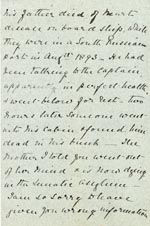 his Father died of heart
disease on board Ship, while
they were in a South Russian
port in Augst 1893 — He had
been talking to the Captain
apparently in perfect health,
& went below for rest — two
hours later Someone went
into his Cabin & found him
dead in his bunk — The
Mother I told you went out
of her mind & is now dying
in the Lunatic Asylum —
I am so sorry to have
given you wrong information